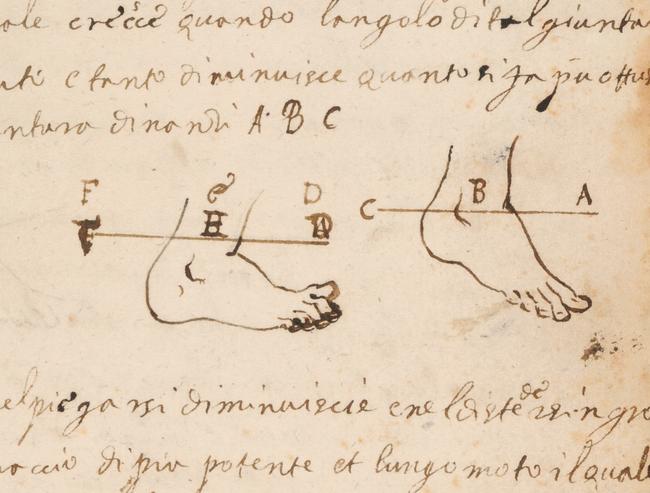 ale crescie quando langolo di tal giuntu
uto e tanto diminuisce quanto si fa piu ottus
ntura dinanzi A B C
F e D
H
C B A
el piegarsi diminuiscie e nel distedersi in gro
accio di piu potente et lungo moto il quale